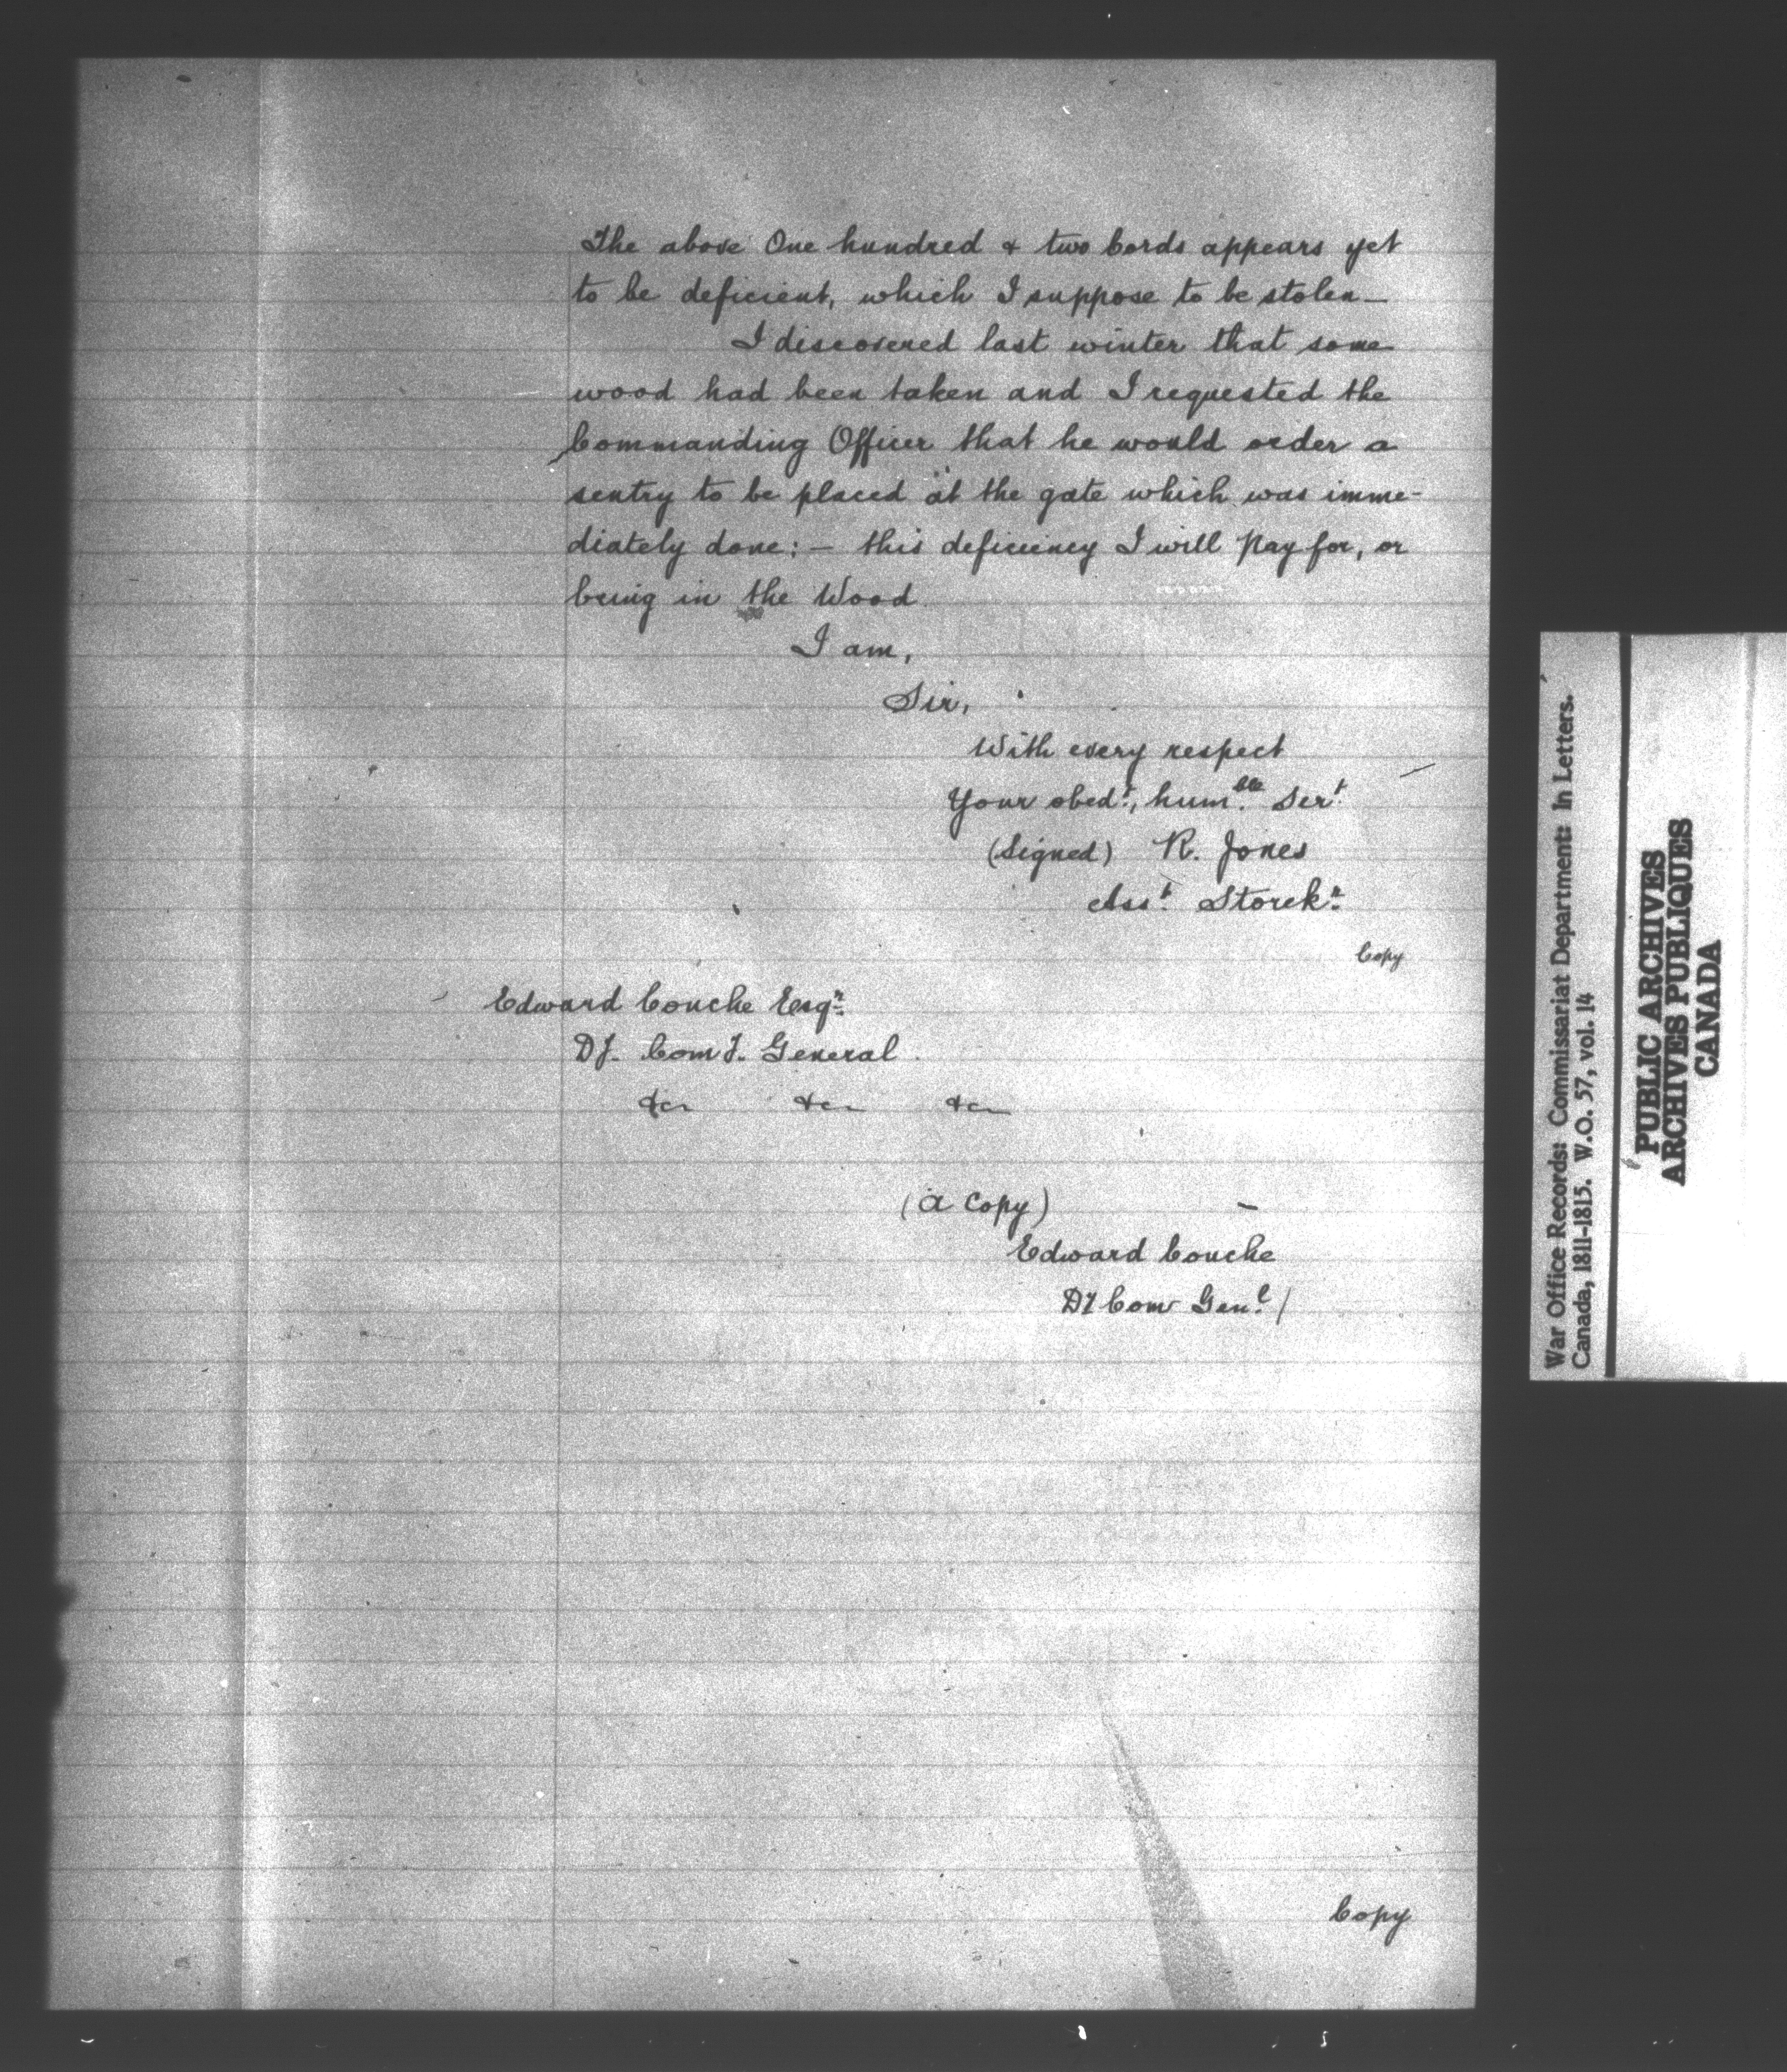 The above One hundred & two Cords appears yet
to be deficient, which I suppose to be stolen—
I discovered last winter that some
wood had been taken and I requested the
Commanding Officer that he would order a
sentry to be placed at the gate which was imme-
diately done: — this deficiency I will Pay for, or
bring in the Wood
I am,
Sir,
With every respect
Your obedt, humble Sert
(Signed) R. Jones
Asst Storekr
Copy
Edward Couche Esqr
DY. Com Y. General
&c &c &c
(A Copy)
Edward Couche
DY Com Genl /
Copy
War Office Records: Commissariat Department: In Letters.
Canada, 1811-1815. W.O. 57, vol. 14
PUBLIC ARCHIVES
ARCHIVES PUBLIQUES
CANADA